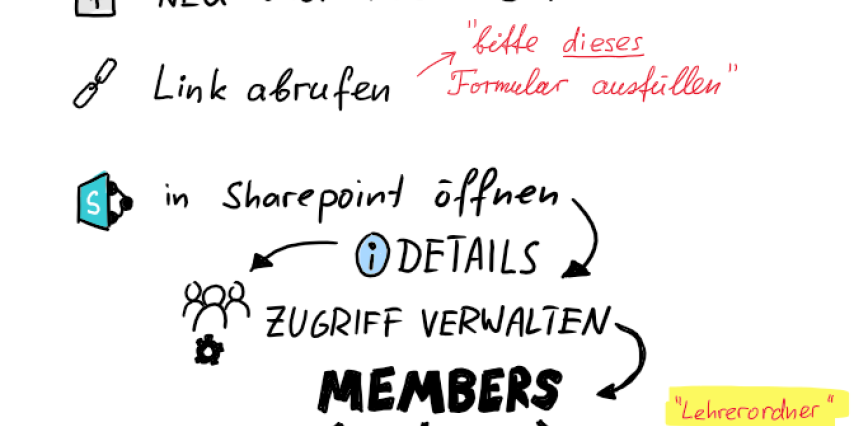 Link abrufen
"bitte dieses
Formular ausfüllen"
S
in Sharepoint öffnen
i DETAILS
ZUGRIFF VERWALTEN
MEMBERS
"Lehrerordner"